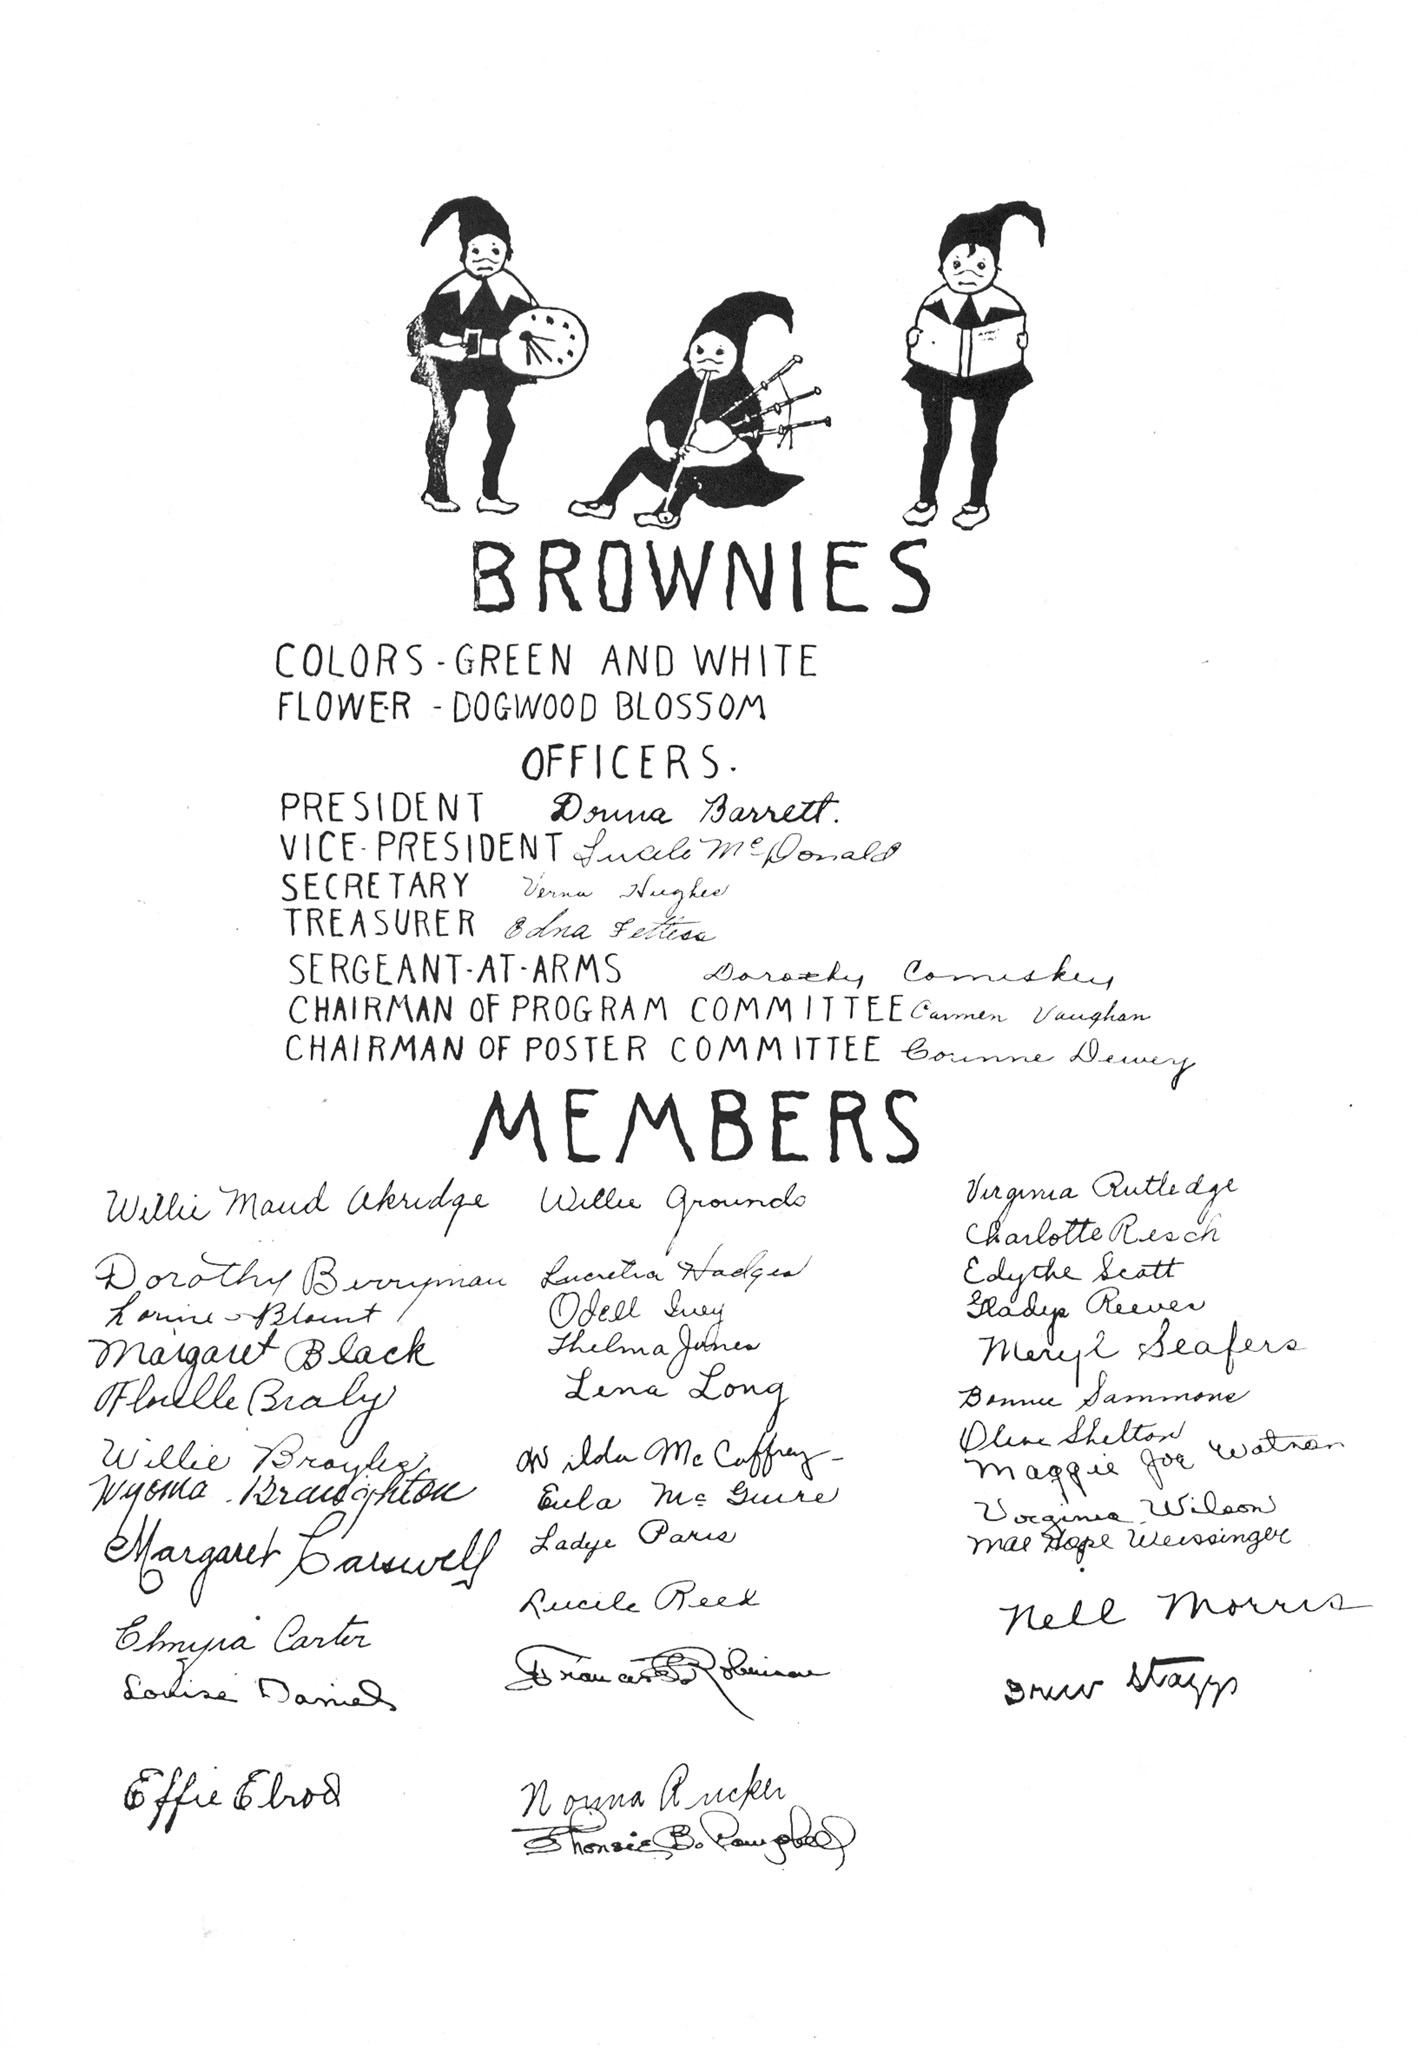 BROWNIES
COLORS - GREEN AND WHITE
FLOWER - DOGWOOD BLOSSOM
OFFICERS.
PRESIDENT Donna Barrett.
VICE-PRESIDENT Lucile McDonald
SECRETARY Verna Hughes
TREASURER Edna
SERGEANT-AT-ARMS Dorothy Comiskey
CHAIRMAN OF PROGRAM COMMITTEE Carmen Vaughan
CHAIRMAN OF POSTER COMMITTEE Corinne Dewey
MEMBERS
Willie Maud Akridge
Dorothy Berryman
Lorine Blount
Margaret Black
Florelle Braly
Willie Broyles
Wyoma Braughton
Margaret Carswell
Elmyra Carter
Louise Daniels
Effie Elrod
Willie Grounds
Lucretia Hodges
Odell Ivey
Thelma Jones
Lena Long
Wilda McCaffrey
Eula McGuire
Ladye Paris
Lucile Reed
Frances Robinson
Norma Rucker
B. Campbell
Virginia Rutledge
Charlotte Resch
Edythe Scott
Gladys Reeves
Meryl Seafers
Bonnie Sammons
Olene Shelton
Maggie Joe Watson
Virginia Wilson
Mae Hope Weissinger
Nell Morris
Drew Staggs